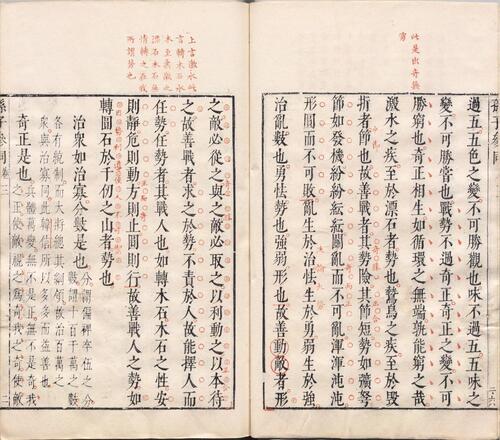 此是出奇無
窮
過五五色之變不可勝觀也味不過五五味之
變不可勝嘗也戰勢不過奇正奇正之變不可
勝窮也奇正相生如循環之無端孰能窮之哉
激水之疾至於漂石者勢也鷙鳥之疾至於毀
折者節也故善戰者其勢險其節短勢如彍弩
節如發機紛紛紜紜鬬亂而不可亂渾渾沌沌
形圓而不可敗亂生於治怯生於勇弱生於強
治亂數也勇怯勢也強弱形也故善動敵者形
上言激水此
言轉木石水
漂石木石無
情轉之在我
所謂勢也
之敵必從之與之敵必取之以利動之以本待
之故善戰者求之於勢不責於人故能擇人而
任勢任勢者其戰人也如轉木石木石之性安
則靜危則動方則止圓則行故善戰人之勢如
轉圓石於千仞之山者勢也
治眾如治寡分數是也
分謂偏裨卒伍之分
數謂十百千萬之數
各有統制而大將總其綱領故治百萬之
眾與治寡同此韓信所以多多而益善也
奇正是也
兵體萬變無不是正無不是奇我
之正使敵視之為奇我之奇使敵
孫子參同 卷三